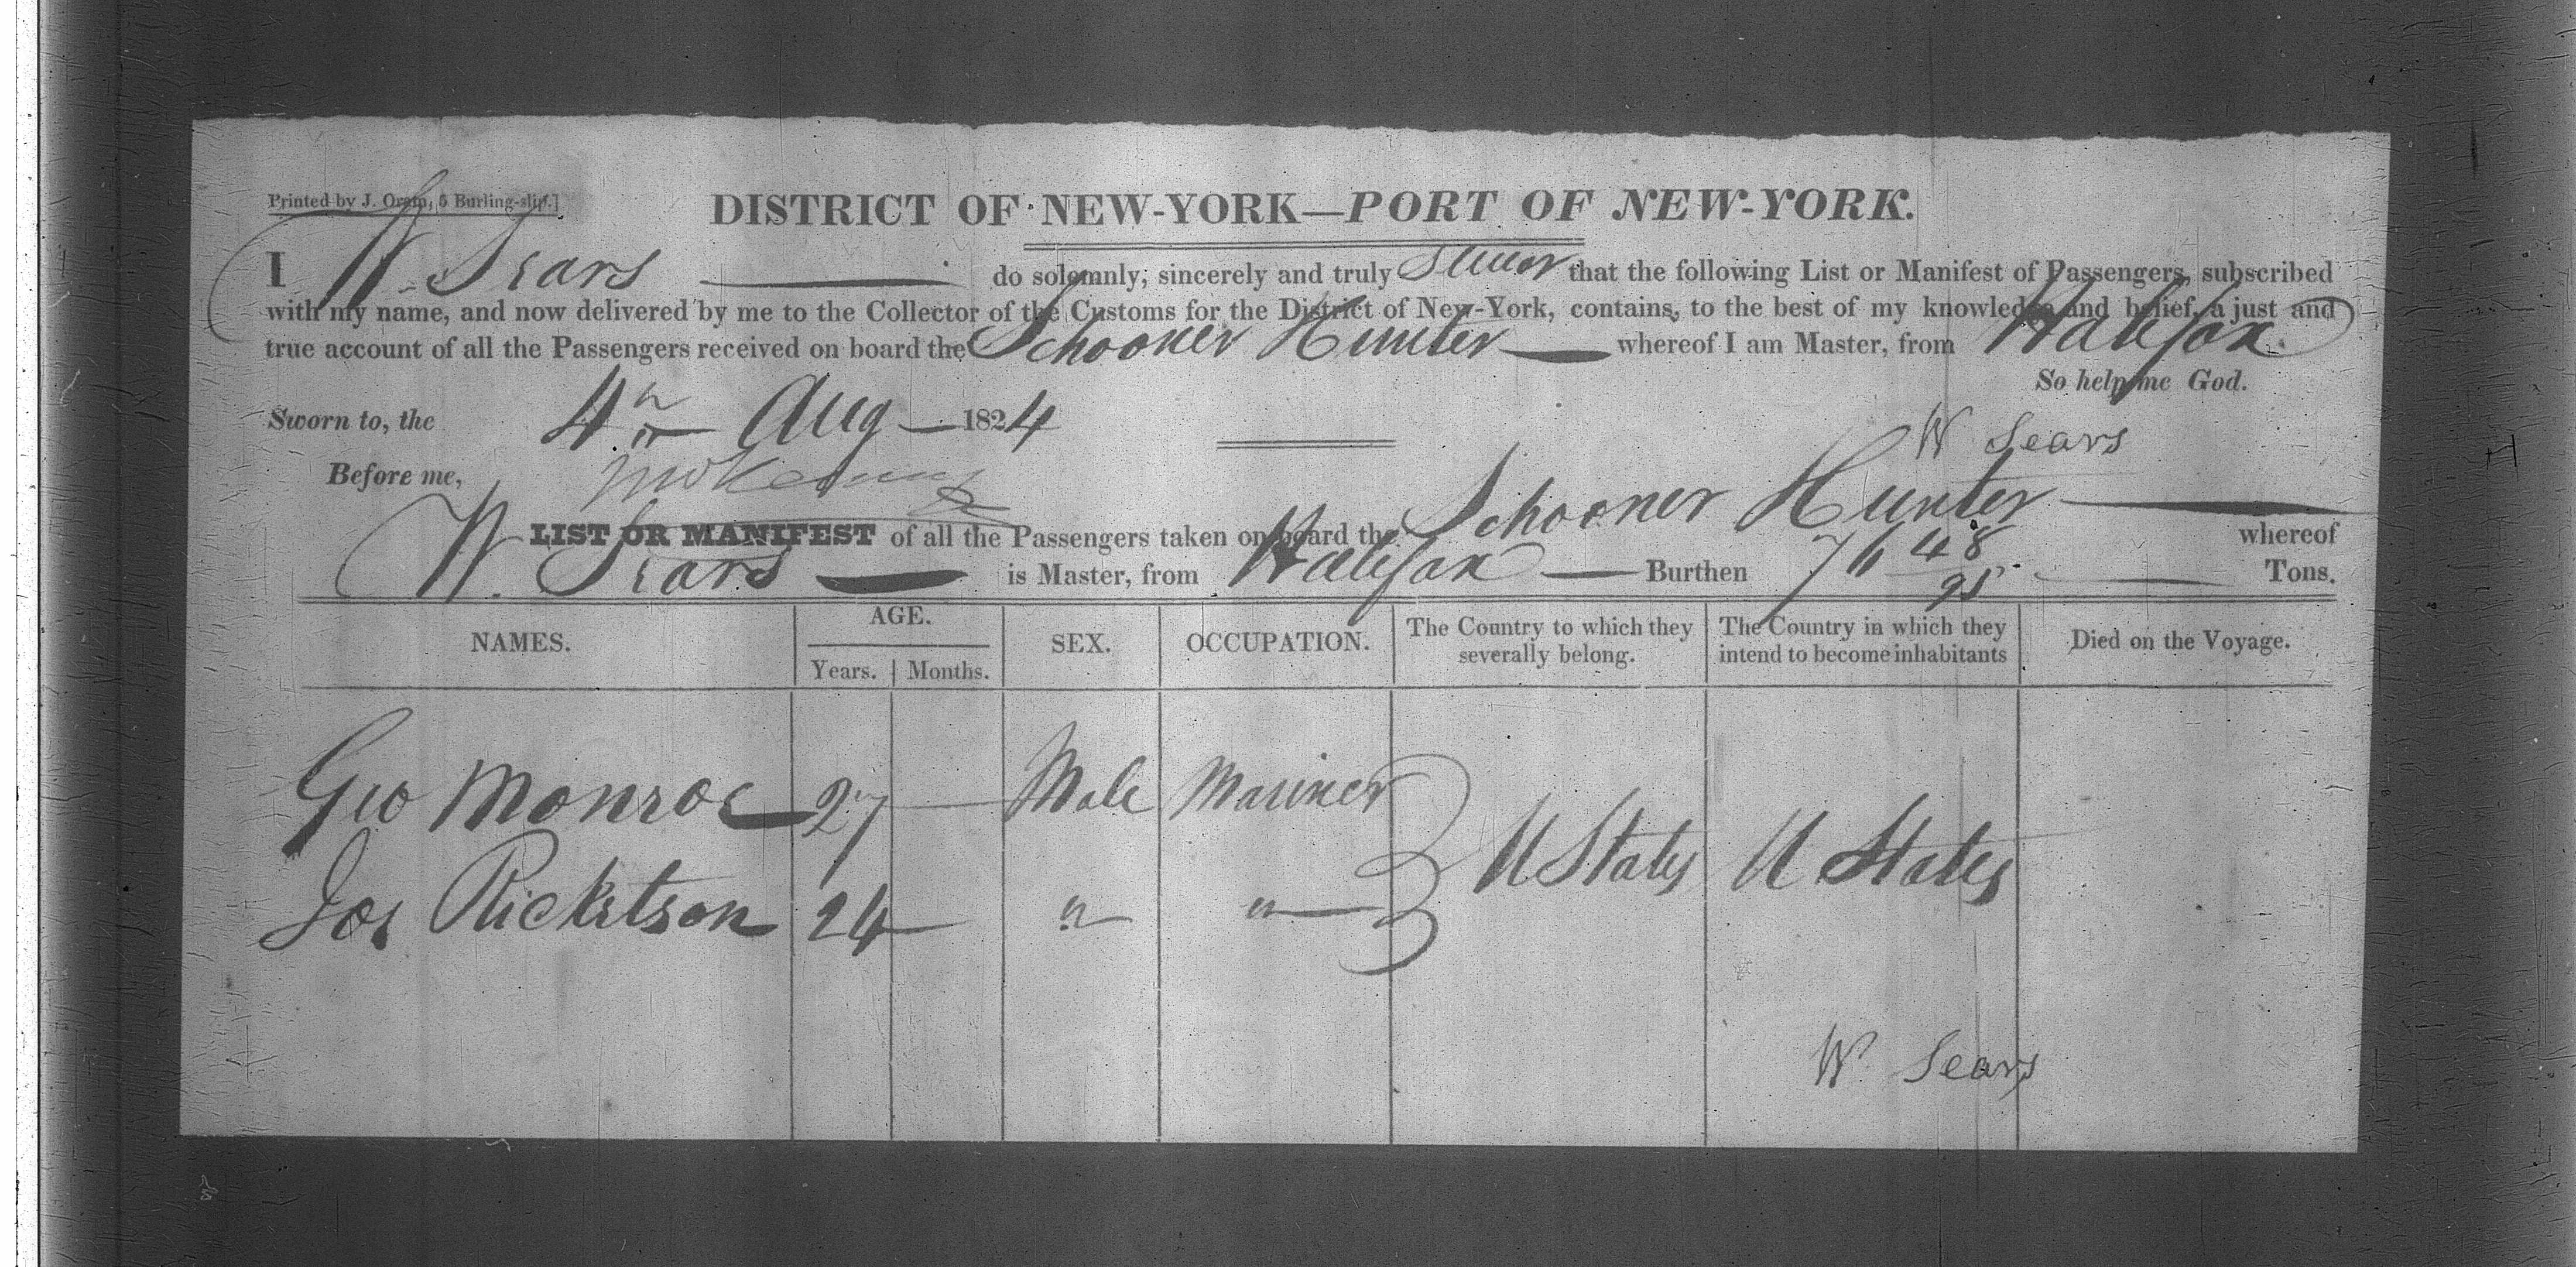 Printed by J. Oram, 5 Burling-slip.]
DISTRICT OF NEW-YORK—PORT OF NEW-YORK.
I W. Sears do solemnly, sincerely and truly swear that the following List or Manifest of Passengers, subscribed
with my name, and now delivered by me to the Collector of the Customs for the District of New-York, contains, to the best of my knowledge and belief, a just and
true account of all the Passengers received on board the Schooner Hunter — whereof I am Master, from Halifax.
So help me God.
Sworn to, the 4th Aug — 1824
W Sears
Before me,
LIST OR MANIFEST of all the Passengers taken on board the Schooner Hunter — whereof
W. Sears — is Master, from Halifax — Burthen 76 48/95 — Tons.
NAMES. AGE. Years. Months. SEX. OCCUPATION. The Country to which they severally belong. The Country in which they intend to become inhabitants Died on the Voyage.
Geo Monroe 27 — Male Mariner
U States U States
Jos Ricketson 24 — " "
W Sears